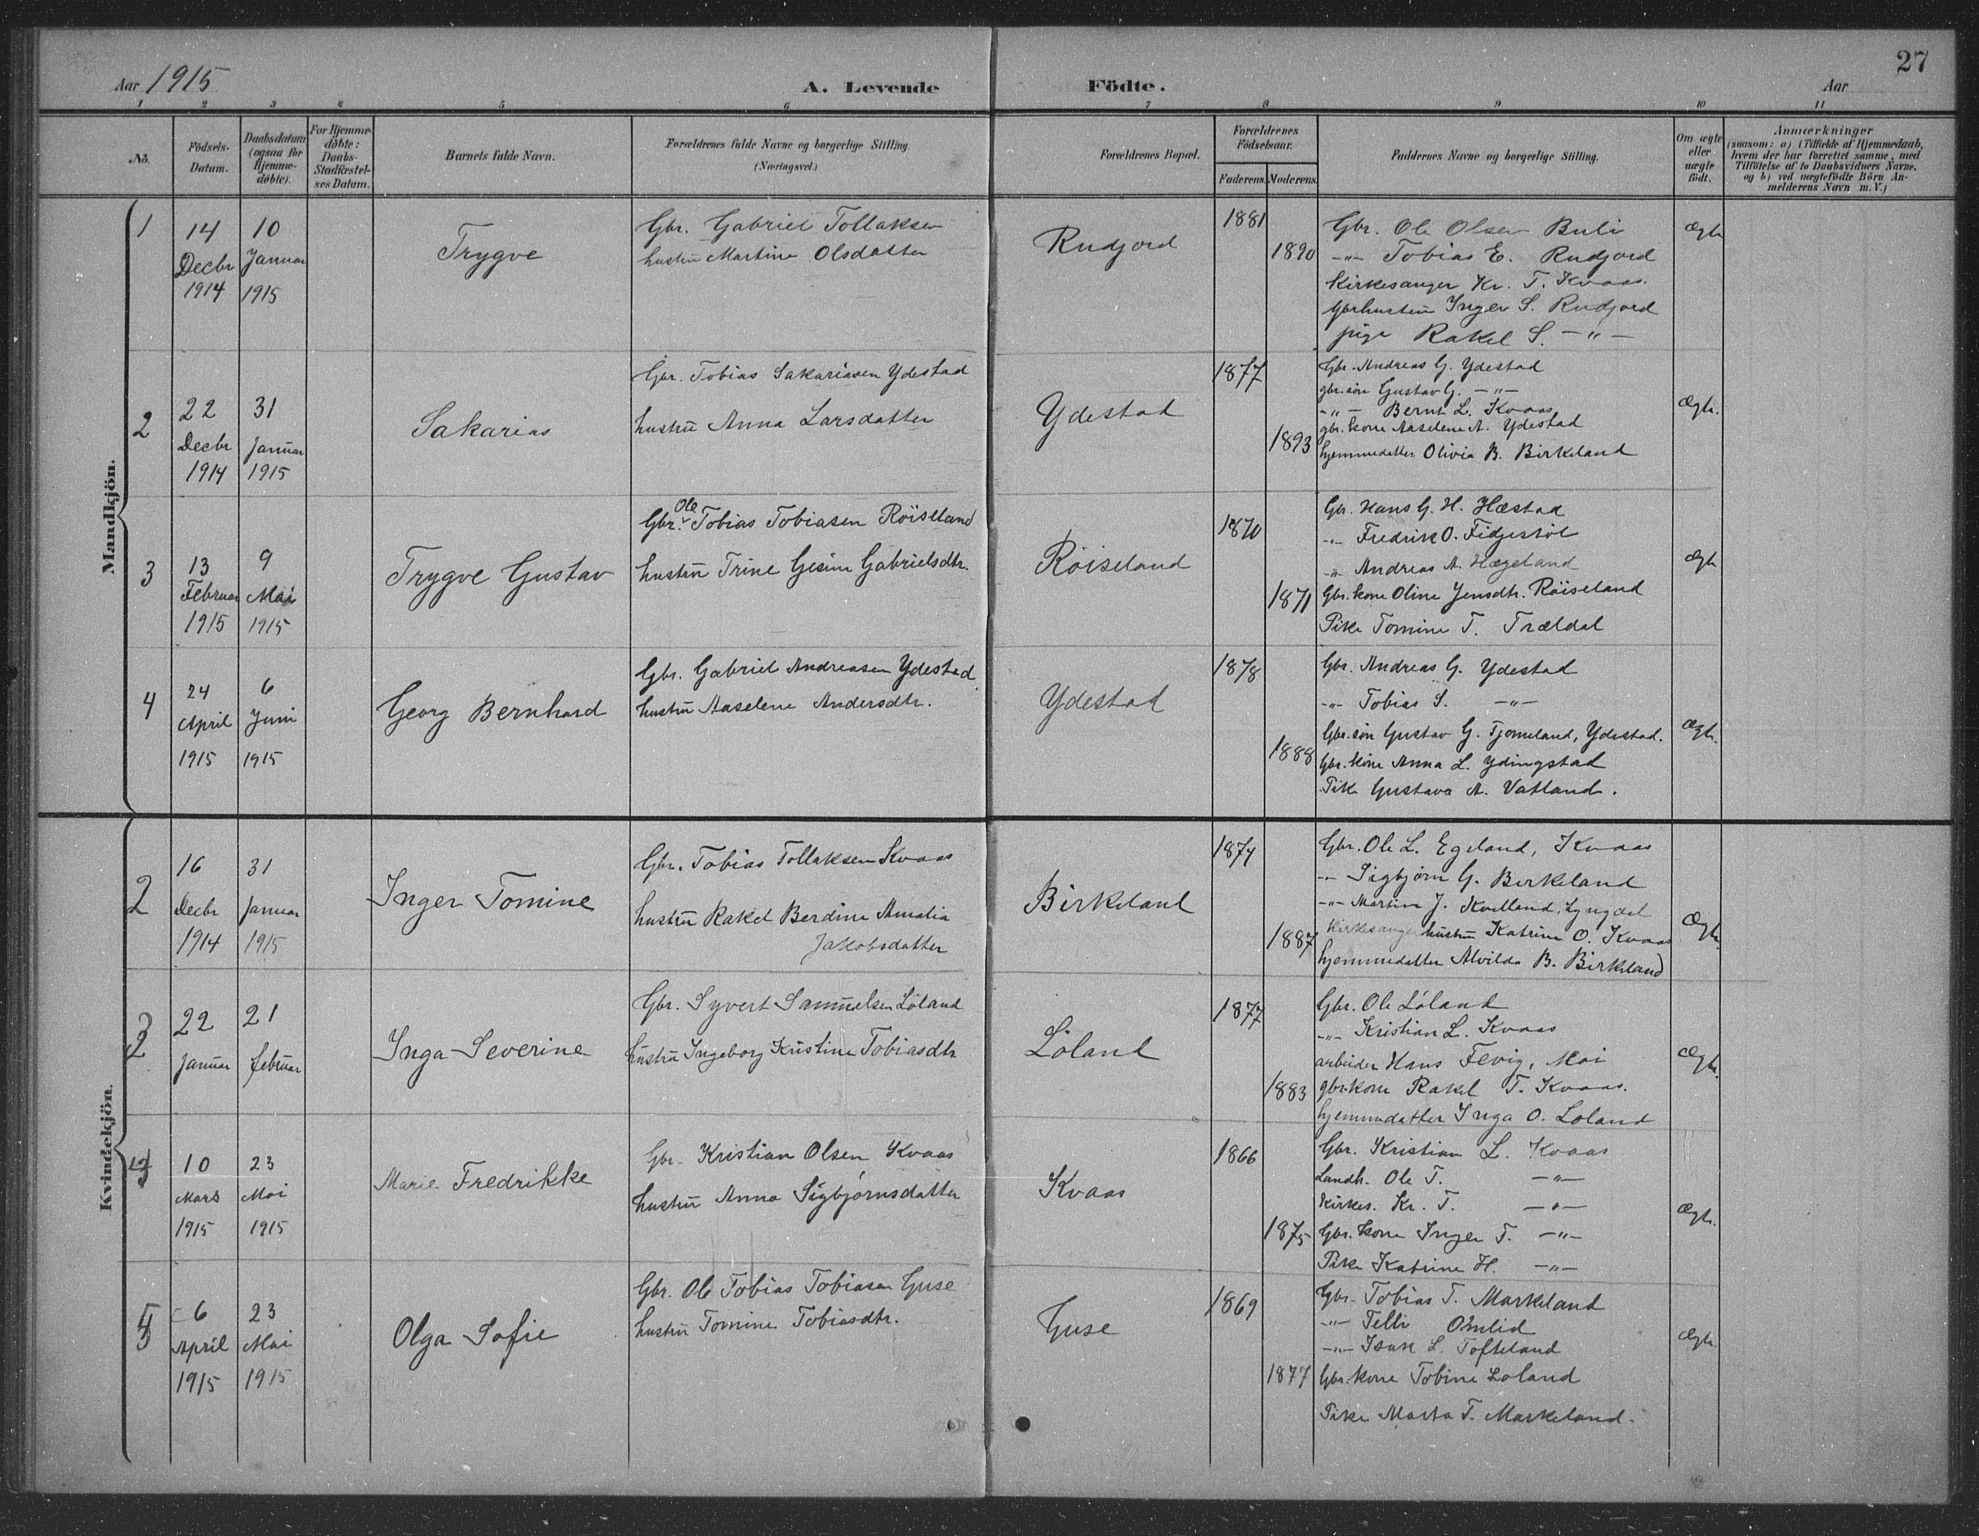 27
Aar 1915 A. Levende Födte. Aar
1 2 3 4 5 6 7 8 9 10 11
No.
Födsels-Datum.
Daabsdatum (ogsaa for Hjemme-döbte).
For Hjemme-döbte: Daabs-Stadfæstelses Datum.
Barnets fulde Navn.
Forældrenes fulde Navne og borgerlige Stilling. (Næringsvei.)
Forældrenes Bopæl.
Forældrenes Födselsaar.
Faderens. Moderens.
Faddernes Navne og borgerlige Stilling.
Om ægte eller uægte födt.
Anmærkninger
(saasom: a) i Tilfælde af Hjemmedaab,
hvem der har forrettet samme, med
Tilföielse af to Daabsvidners Navne.
og b) ved uægtefödte Börn An-
melderens Navn m. V.)
Mandkjön.
1
14 Decbr 1914
10 Januar 1915
Trygve
Gbr. Gabriel Tollaksen
hustru Martine Olsdatter
Rudjord
1881
1890
Gbr. Ole Olsen Buli
-"- Tobias E. Rudjord
Kirkesanger Kr. T. Kvaas.
gbrhustru Inger S. Rudjord
pige Rakel S. -"-
Ægte
2
22 Decbr 1914
31 Januar 1915
Sakarias
Gbr. Tobias Sakariasen Ydestad
hustru Anna Larsdatter
Ydestad
1877
1893
Gbr. Andreas G. Ydestad
gbr.søn Gustav G. -"-
-"- Bernt L. Kvaas
gbr. kone Aaselene A. Ydestad
hjemmedatter Olivia B. Birkeland
Ægte.
3
13 Februar 1915
9 Mai 1915
Trygve Gustav
Ole
Gbr. Tobias Tobiasen Røiseland
hustru Trine Gesine Gabrielsdtr.
Røiseland
1870
1871
Gbr. Hans G. H. Hæstad
-"- Fredrik O. Fidjestøl
-"- Andreas A. Hægeland
Gbr. kone Oline Jensdtr. Røiseland
Pike Tomine T. Trældal
Ægte
4
24 April 1915
6 Juni 1915
Georg Bernhard
Gbr. Gabriel Andreasen Ydestad.
hustru Aaselene Andersdtr.
Ydestad
1878
1888
Gbr. Andreas G. Ydestad
-"- Tobias S. -"-
Gbr. søn Gustav G. Tjomeland, Ydestad.
Gbr. kone Anna L. Ydingstad
Pike Gustava A. Vatland.
Ægte.
Kvindekjön.
2
16 Decbr 1914
31 Januar 1915
Inger Tomine
Gbr. Tobias Tollaksen Kvaas
hustru Rakel Berdine Amalia
Jakobsdatter
Birkeland
1874
1887
Gbr. Ole L. Egeland, Kvaas
-"- Sigbjørn G. Birkeland
-"- Martin J. Kvelland, Lyngdal
Kirkesanger hustru Katrine O. Kvaas
hjemmedatter Alvilda B. Birkeland
Ægte.
3
22 Januar
21 februar
Inga Severine
Gbr. Syvert Samuelsen Løland
hustru Ingeborg Kristine Tobiasdtr
Løland
1877
1883
Gbr. Ole Løland
-"- Kristian L. Kvaas
arbeider Hans Fevig, Moi
gbrkone Rakel T. Kvaas.
hjemmedatter Inga O. Løland
Ægte.
4
10 Mars 1915
23 Mai 1915
Marie Fredrikke
Gbr. Kristian Olsen Kvaas
hustru Anna Sigbjørnsdatter
Kvaas
1866
1875
Gbr. Kristian L. Kvaas
Landh. Ole T. -"-
Kirkes. Kr. T. -"-
Gbr. kone Inger T. -"-
Pike Katrine H. -"-
Ægte.
5
6 April 1915
23 Mai 1915
Olga Sofie
Gbr. Ole Tobias Tobiasen Guse
hustru Tomine Tobiasdtr.
Guse
1869
1877
Gbr. Tobias T. Markeland
-"- Tellv Omlid
-"- Isak L. Tofteland
Gbr. kone Tobine Løland
Pike Marta T. Markeland.
Ægte.